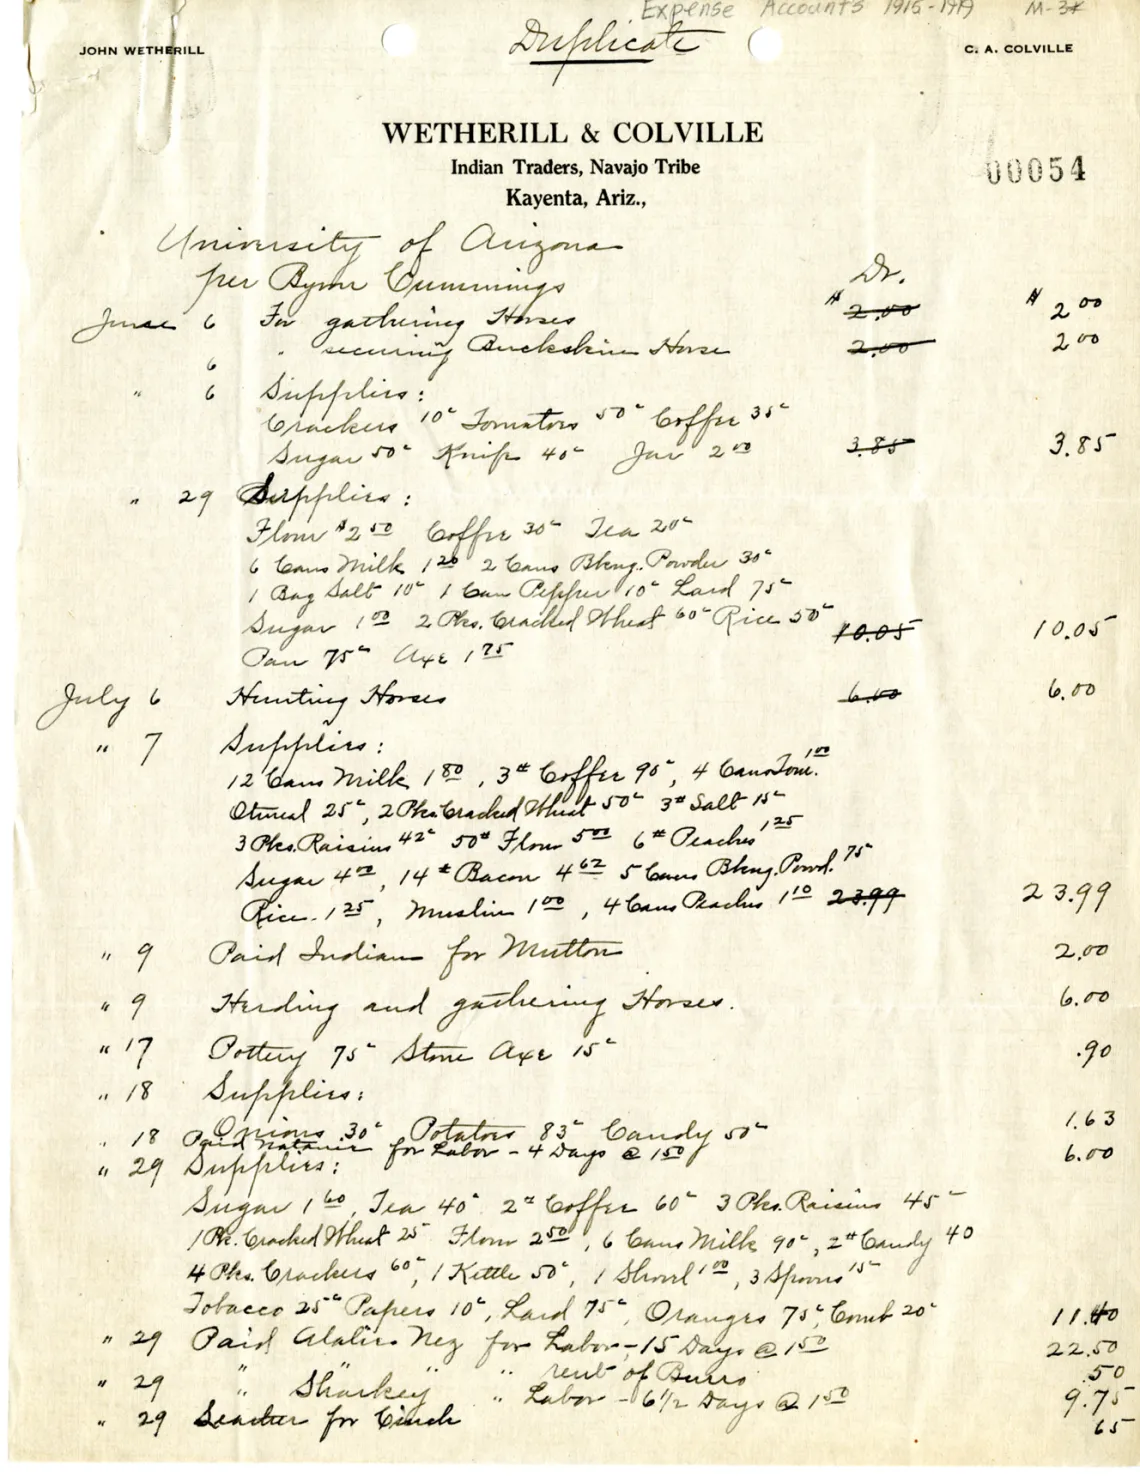 Expense Accounts 1915-1919 M-3
Duplicate
JOHN WETHERILL
C. A. COLVILLE
WETHERILL & COLVILLE
Indian Traders, Navajo Tribe
Kayenta, Ariz.,
00054
University of Arizona
per Byron Cummings Dr.
June 6 For gathering Horses $ 2.00 $ 2 00
6 " securing Buckskin Horse 2.00 2 00
" 6 Supplies:
Crackers 10c Tomatoes 50c Coffee 35c
Sugar 50c Knife 40c Jar 2 00 3.85 3.85
" 29 Supplies:
Flour $2 50 Coffee 30c Tea 20c
6 Cans Milk 1 20 2 Cans Bkng. Powder 30c
1 Bag Salt 10c 1 Can Pepper 10c Lard 75c
Sugar 1 00 2 Pks. Cracked Wheat 60c Rice 50c
Pan 75c Axe 1 75 10.05 10.05
July 6 Hunting Horses 6.00 6.00
" 7 Supplies:
12 Cans Milk 1 80, 3# Coffee 90c, 4 Cans Tom. 1 00
Otmeal 25c, 2 Pks Cracked Wheat 50c 3# Salt 15c
3 Pks. Raisins 42c 50# Flour 5 00 6# Peaches 1 25
Sugar 4 00, 14# Bacon 4 62 5 Cans Bkng. Powd. 75
Rice. 1 25, Muslin 1 00, 4 Cans Peaches 1 10 23.99 23.99
" 9 Paid Indian for Mutton 2.00
" 9 Herding and gathering Horses. 6.00
" 17 Pottery 75c Stone Axe 15c .90
" 18 Supplies:
Onions 30c Potatoes 83c Candy 50c 1.63
" 18 Paid for Labor - 4 Days @ 1 50 6.00
" 29 Supplies:
Sugar 1 60, Tea 40c 2# Coffee 60c 3 Pks. Raisins 45c
1 Pk. Cracked Wheat 25 Flour 2 50, 6 Cans Milk 90c, 2# Candy 40
4 Pks. Crackers 60c, 1 Kettle 50c, 1 Shovel 1 00, 3 Spoons 15c
Tobacco 25c Papers 10c, Lard 75c, Oranges 75c, Comb 20c 11.40
" 29 Paid Nez for Labor - 15 Days @ 1 50 22.50
" " " rent of Burro .50
" 29 " Sharkey " Labor - 6 1/2 Days @ 1 50 9.75
" 29 Leather for Cinch 65